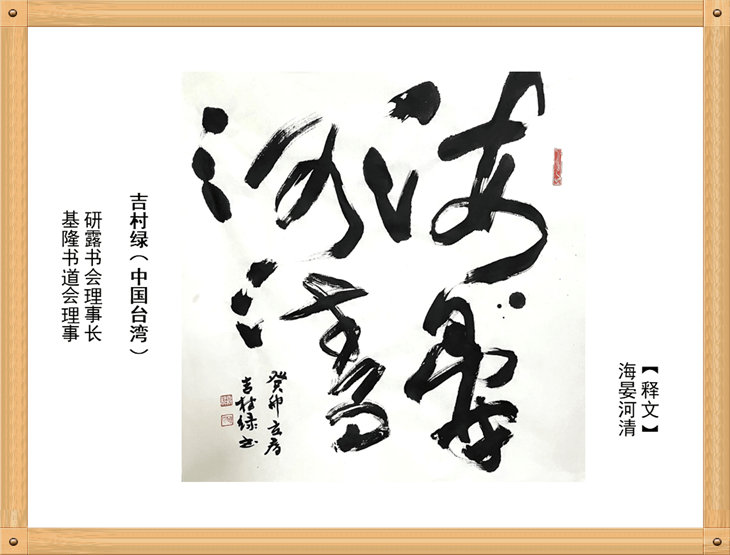 【释文】
海晏河清
海晏
河清
癸卯春
吉村绿书
吉村绿（中国台湾）
研露书会理事长
基隆书道会理事